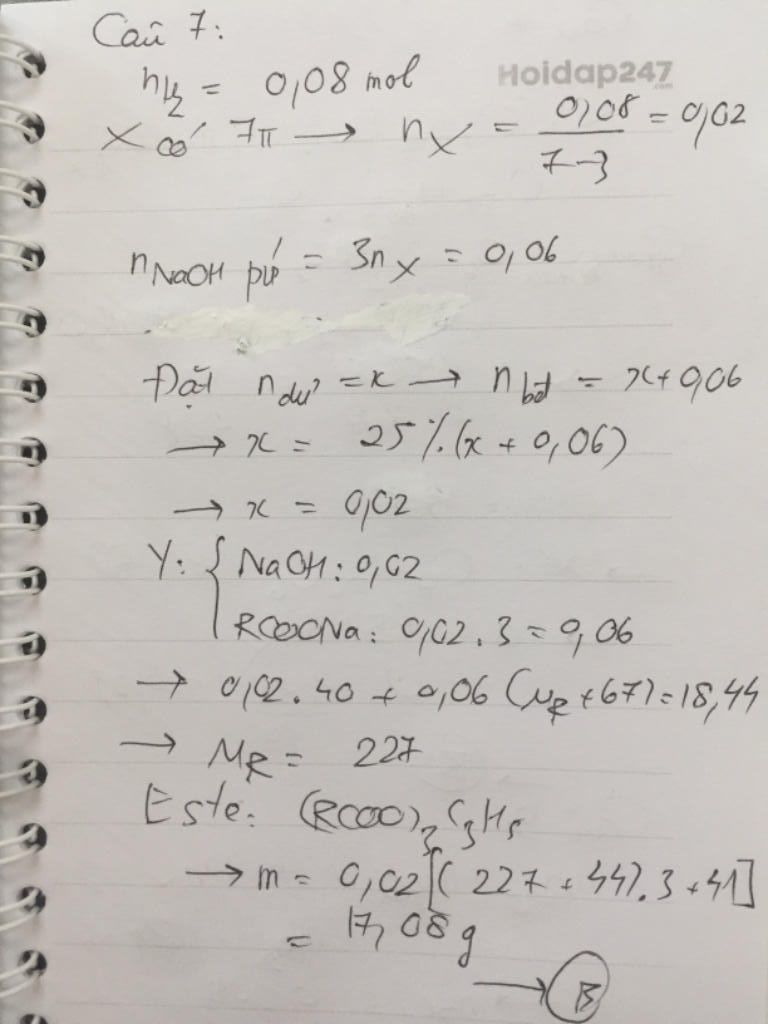 Câu 7:
Hoidap247
.com
nH₂ = 0,08 mol
X có 7π → nX = 0,08/(7-3) = 0,02
nNaOH pứ = 3nX = 0,06
Đặt n dư = x → n bđ = x + 0,06
→ x = 25%.(x + 0,06)
→ x = 0,02
Y: { NaOH: 0,02
RCOONa: 0,02.3 = 0,06
→ 0,02.40 + 0,06(MR + 67) = 18,44
→ MR = 227
Este: (RCOO)₃C₃H₅
→ m = 0,02[(227 + 44).3 + 41]
= 17,08 g
→ B